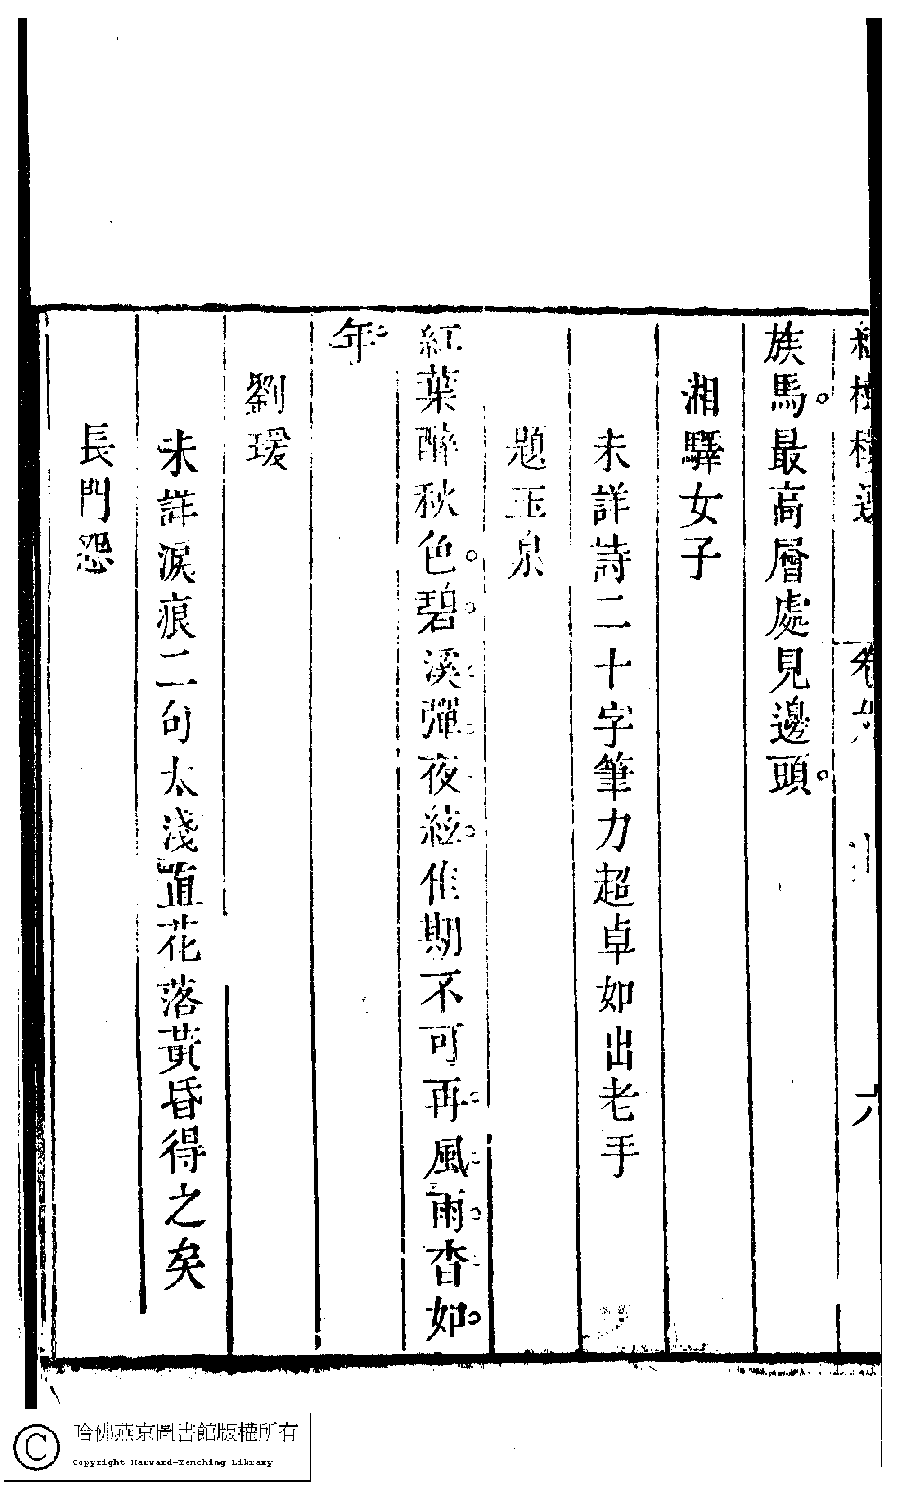 族馬。最高層處見邊頭。
湘驛女子
未詳詩二十字筆力超卓如出老手
題玉泉
紅葉醉秋色。碧溪彈夜絃。佳期不可再風雨杳如
年
劉瑗
未詳淚痕二句太淺直花落黃昏得之矣
長門怨
哈佛燕京圖書館版權所有
Copyright Harvard-Yenching Library